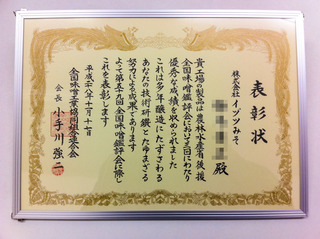 表彰状
株式会社 イヅツみそ
殿
貴工場の製品は農林水産省後援
全国味噌鑑評会において五回にわたり
優秀な成績を収められました
これは多年醸造にたずさわる
あなたの技術研鑽とたゆまざる
努力による成果であります
よって第五十回全国味噌鑑評会に際し
これを表彰します
全国味噌工業協同組合連合会
会長 小手川 強二